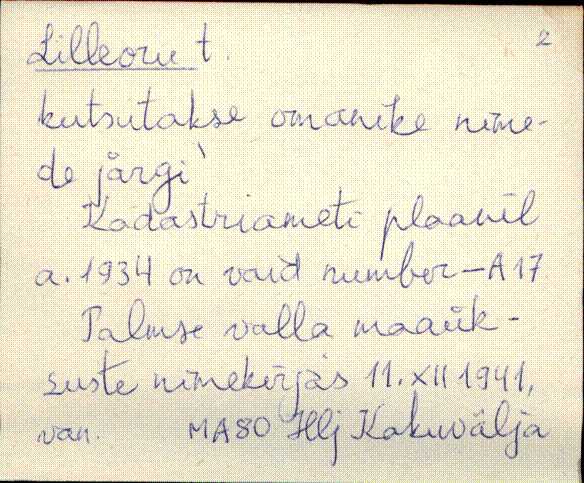 2
Lilleoru t.
kutsutakse omanike nime-
de järgi
Kadastriameti plaanil
a. 1934 on vaid number - A 17
Palmse valla maaük-
suste nimekirjas 11. XII 1941,
van. MA80 Hlj Kakuvälja